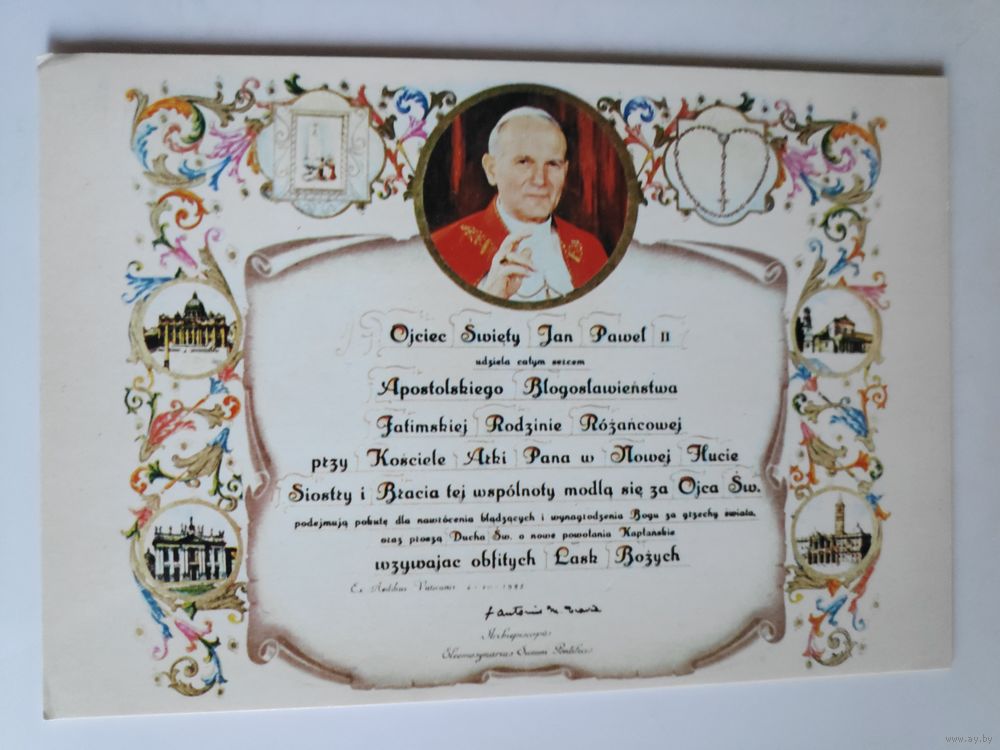 Ojciec Święty Jan Paweł II
udziela całym sercem
Apostolskiego Błogosławieństwa
Fatimskiej Rodzinie Różańcowej
przy Kościele Arki Pana w Nowej Hucie
Siostry i Bracia tej wspólnoty modlą się za Ojca Św.
podejmują pokutę dla nawrócenia błądzących i wynagrodzenia Bogu za grzechy świata,
oraz proszą Ducha Św. o nowe powołania Kapłańskie
wzywając obfitych Łask Bożych
Ex Aedibus Vaticanis
Archiepiscopus
Eleemosynarius
www.ay.by